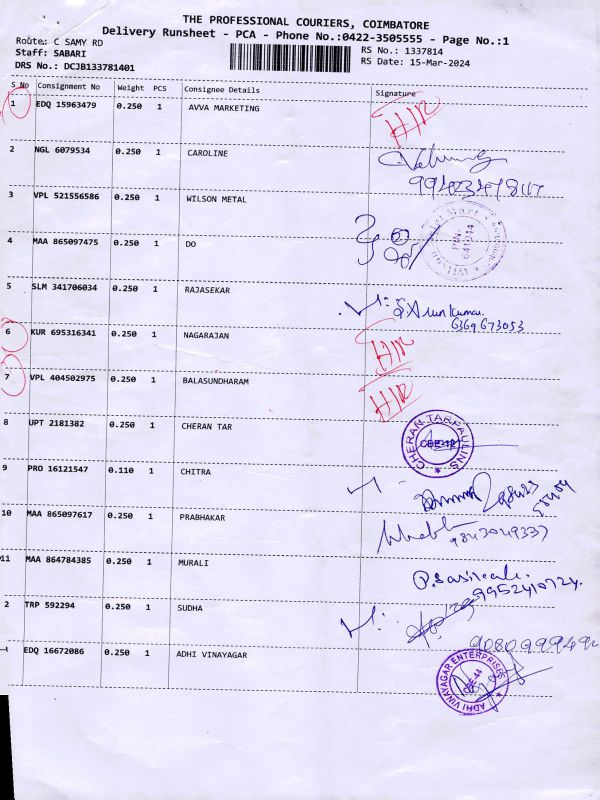 THE PROFESSIONAL COURIERS, COIMBATORE
Delivery Runsheet - PCA - Phone No.:0422-3505555 - Page No.:1
Route: C SAMY RD
Staff: SABARI
DRS No.: DCJB133781401
RS No.: 1337814
RS Date: 15-Mar-2024
S No Consignment No Weight PCS Consignee Details Signature
1 EDQ 15963479 0.250 1 AVVA MARKETING
2 NGL 6079534 0.250 1 CAROLINE
3 VPL 521556586 0.250 1 WILSON METAL
4 MAA 865097475 0.250 1 DO
5 SLM 341706034 0.250 1 RAJASEKAR
S. Arun Kumar.
6369673053
6 KUR 695316341 0.250 1 NAGARAJAN
7 VPL 404502975 0.250 1 BALASUNDHARAM
8 UPT 2181382 0.250 1 CHERAN TAR
CHERAN TARPAULINS
9 PRO 16121547 0.110 1 CHITRA
10 MAA 865097617 0.250 1 PRABHAKAR
9843049337
11 MAA 864784385 0.250 1 MURALI
9952410724.
2 TRP 592294 0.250 1 SUDHA
EDQ 16672086 0.250 1 ADHI VINAYAGAR
ADHI VINAYAGAR ENTERPRISES